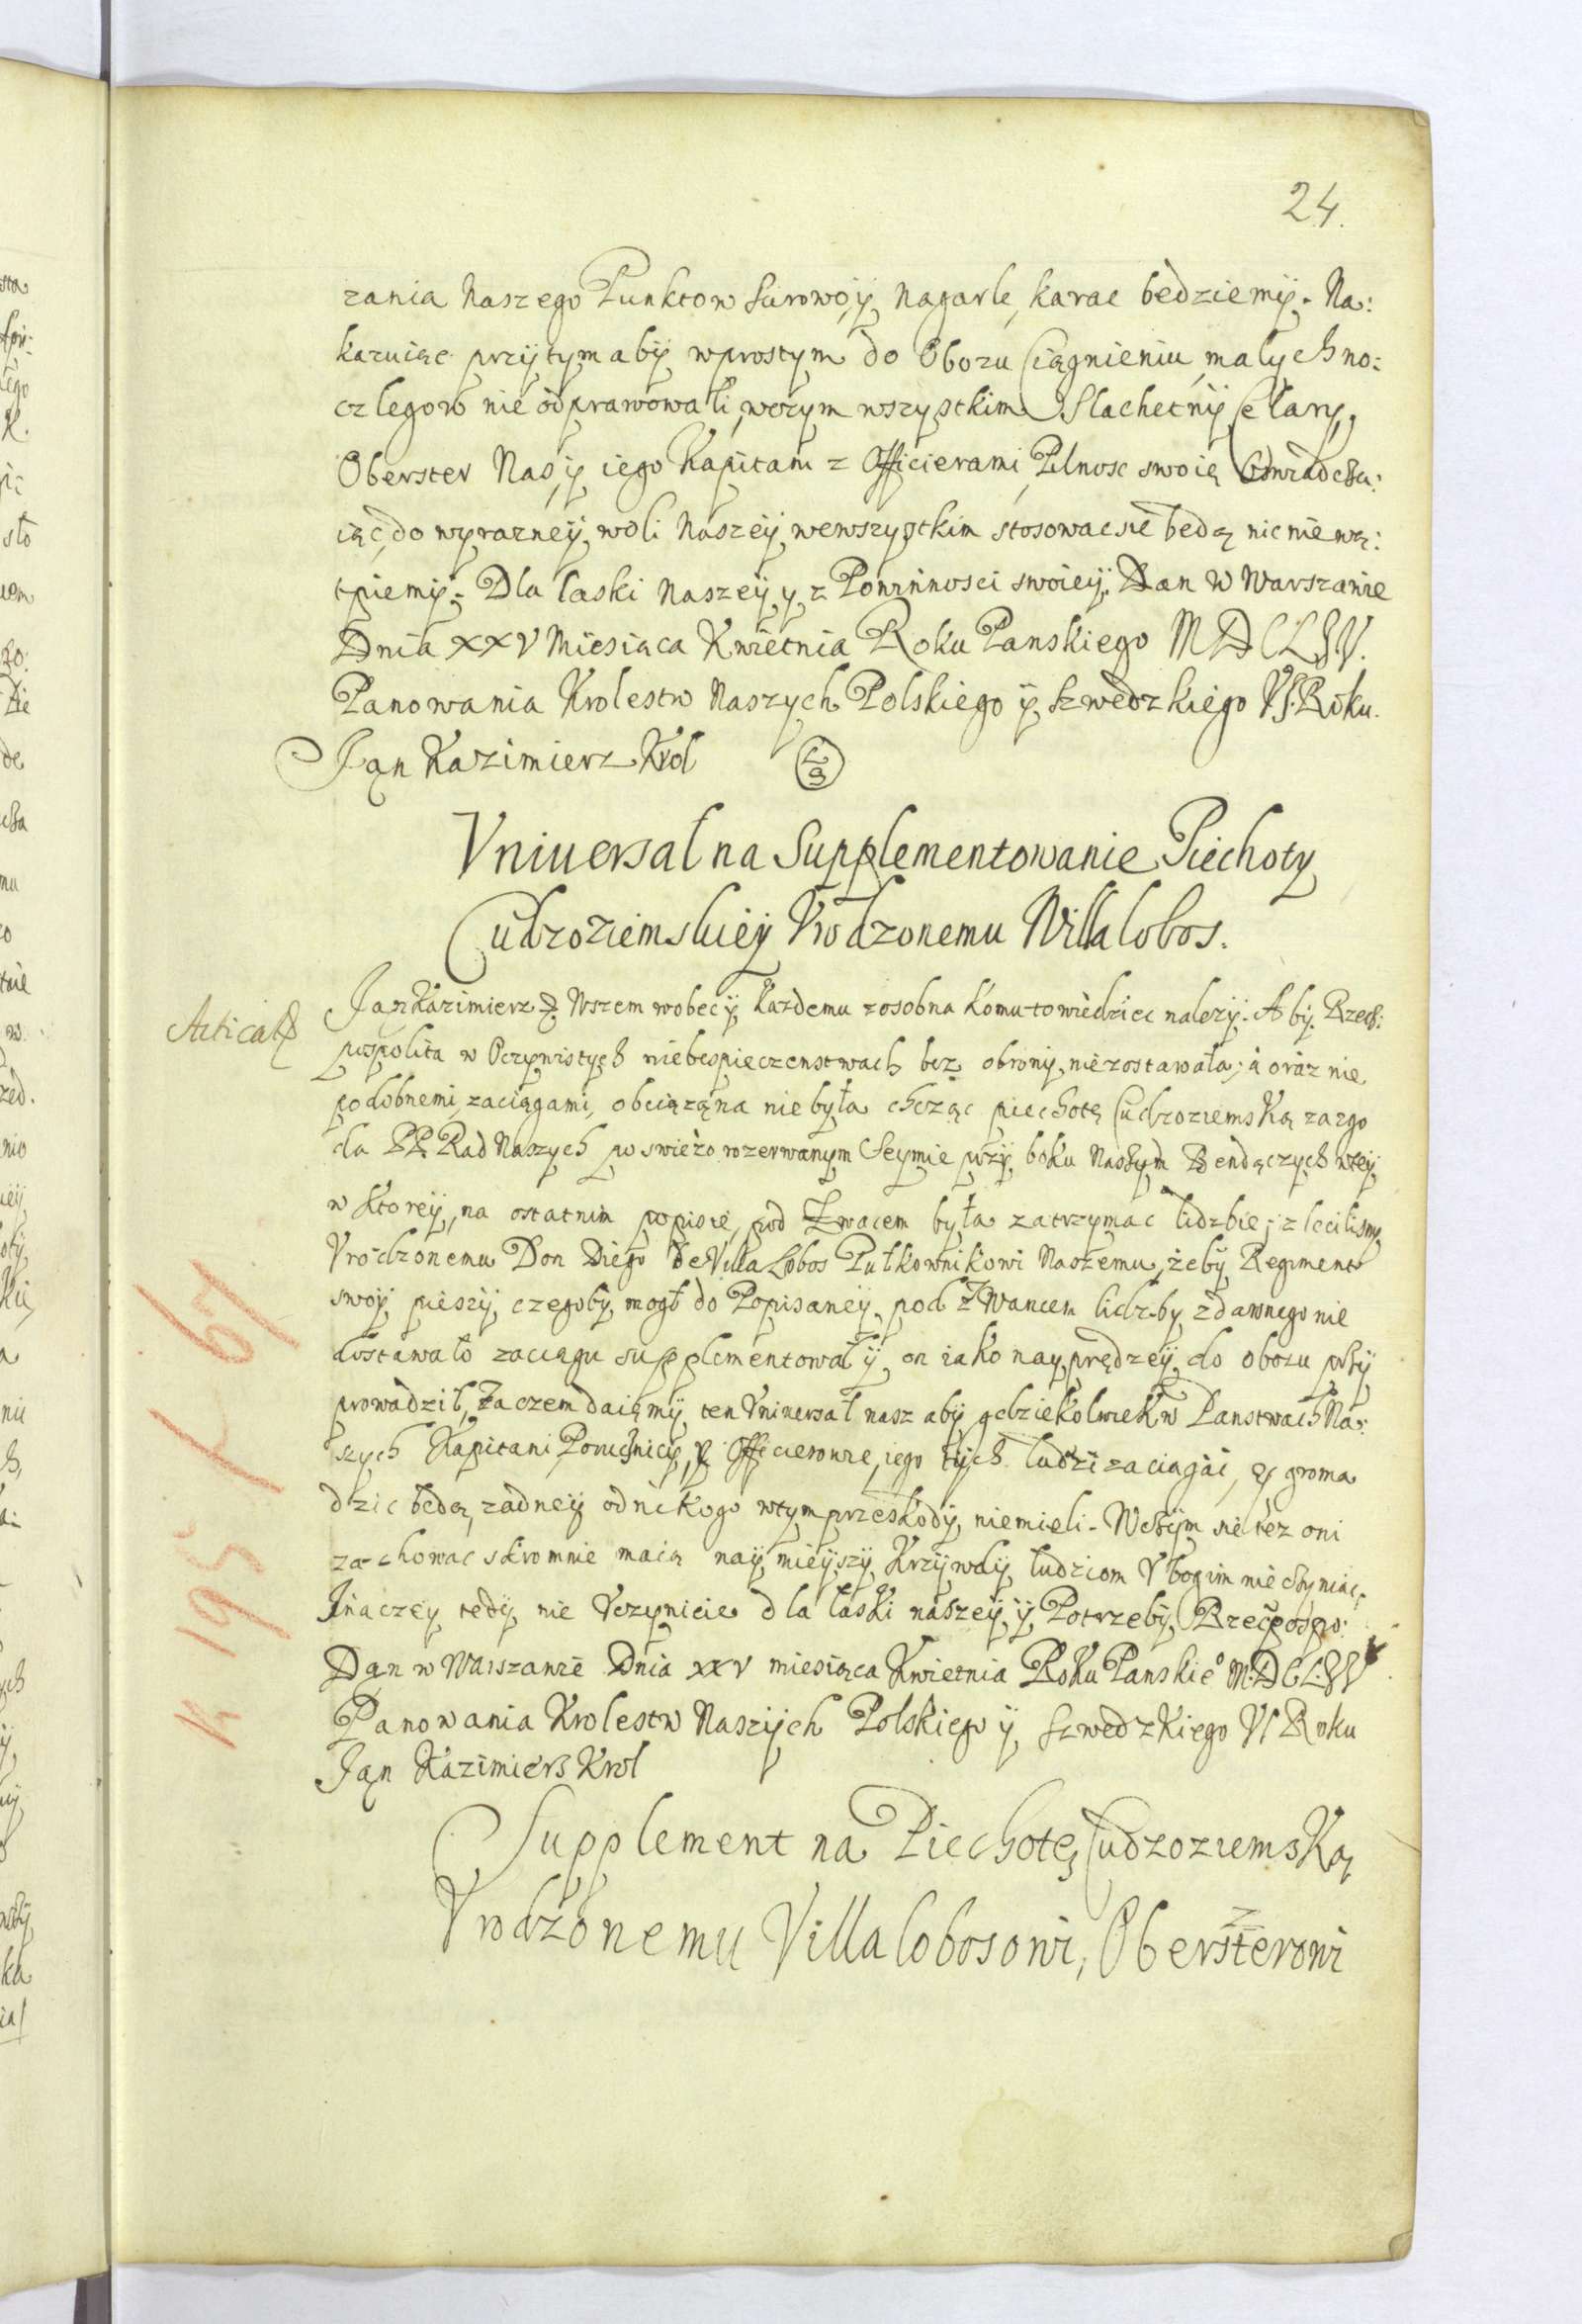 24.
zania Naszego Punktow surowo ÿ nagarle, karac bèdziemÿ. Na:
kazuiąc przÿtym abÿ wprostym do Obozu Ciągnieniu małych no:
czlegow nie odprawowali, wczym wszystkim Slachetnÿ Celary,
Oberster Nas ÿ iego Kapitani z Officierami Pilnosc swoię
iąc, do wyrazneÿ woli Naszeÿ wewszystkim stosowac sie będą nic nie wą:
tpiemÿ. Dla łaski Naszeÿ y z Powinnosci swoieÿ. Dan w Warszawie
Dnia XXV Miesiąca Kwietnia Roku Panskiego MDCLIV.
Panowania Krolestw Naszych Polskiego ÿ Szwedzkiego VI. Roku.
Jan Kazimierz Krol LS
Vniuersał na Supplementowanie Piechoty
Cudzoziemskieÿ Vrodzonemu Villa lobos.
Jan Kazimierz Wszem wobec ÿ kazdemu zosobna komu to wiedziec nalezÿ. A bÿ Rzecz:
pospolita w Oczywistych niebespieczenstwach bez obronÿ nie zostawała; á oráz nie
podobnemi zaciągami, obciązána nie była chcząc piechotę Cudzoziemską zazgo
da PP. Rad Naszych po swiezo rozerwanym Seymie przÿ boku Naszym Bendączych wteÿ
w ktoreÿ, na ostatnim popisie, pod Zwacem była zatrzymac lidzbie; zlecilismy
Vrodzonemu Don Diego de Villa Lobos Pułkownikowi Naszemu, żebÿ Regiment
swoÿ pieszÿ, czegobÿ mogł do Popisaneÿ pod Zwancem lidzby zdawnego nie
dostawało zaciągu supplementował ÿ on iako nayprędzeÿ do obozu przÿ
prowadził, Zaczem daiąmÿ ten Vniuersał nasz abÿ gdziekolwiek w Panstwach Na:
szych Kapitani Porucznicÿ, ÿ Officierowie, iego tÿch ludzi zaciągái, y groma
dzic będą, zadneÿ od nikogo wtym przeskodÿ niemieli. Wczÿm sie tez oni
zachowac skromnie maią naÿmieÿszÿ Krzÿwdÿ ludziom Vbogim nie czyniąc.
Jnaczeÿ tedÿ nie Vczynicie dla łaski naszeÿ ÿ Potrzebÿ Rzeczpospo:
Dan w Warszawie Dnia XXV miesiąca Kwietnia Roku Panskieº M.DCLIV
Panowania Krolestw Naszÿch Polskiego ÿ Szwedzkiego VI Roku
Jan Kazimierz Krol
Supplement na Piechotę Cudzoziemską
Vrodzonemu Villalobosowi, Obersterowi